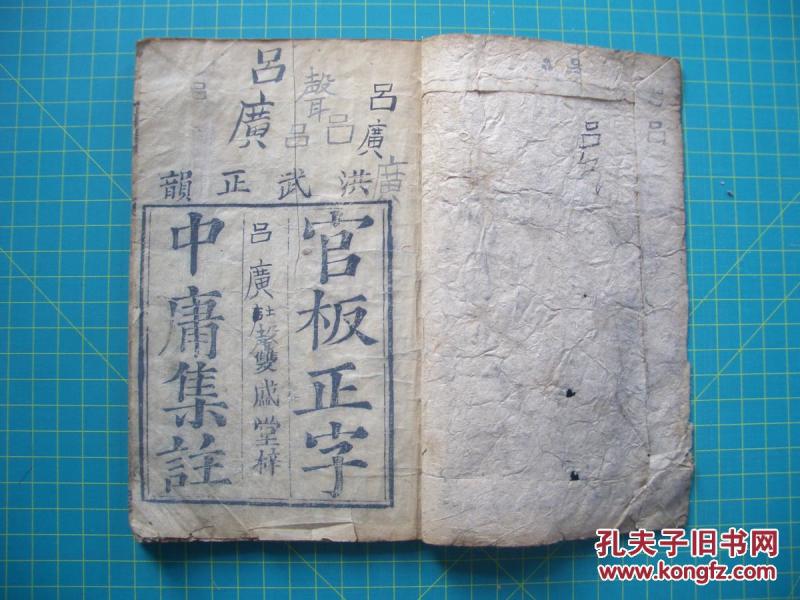 洪武正韻
官板正字
呂廣
雙盛堂梓
中庸集註
呂廣
聲
呂
呂
呂廣
廣
呂
呂
孔夫子旧书网
www.kongfz.com